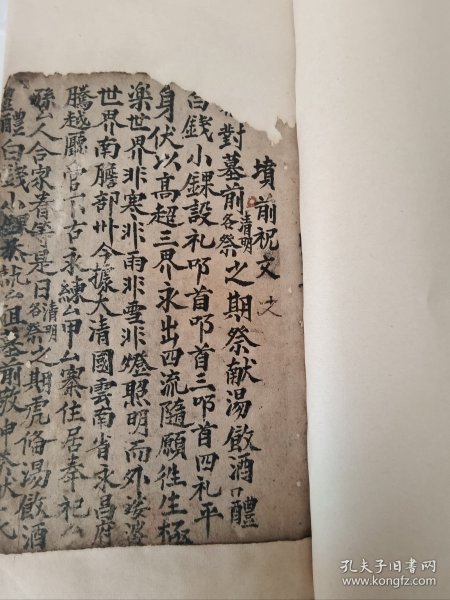 墳前祝文 文
對墓前清明各祭之期祭献湯飯酒醴
白錢小錁設礼叩首叩首三叩首四礼平
身伏以高超三界永出四流隨願徃生極
楽世界非寒非雨非雪非燈照明而外娑婆
世界南膽部州今據大清國雲南省永昌府
騰越廳管下古永練厶甲厶寨住居奉祀厶
縣厶人合家眷等是日清明各祭之期虔俻湯飯酒
醴白錢小錁
墓前敬申
孔夫子旧书网
www.kongfz.com